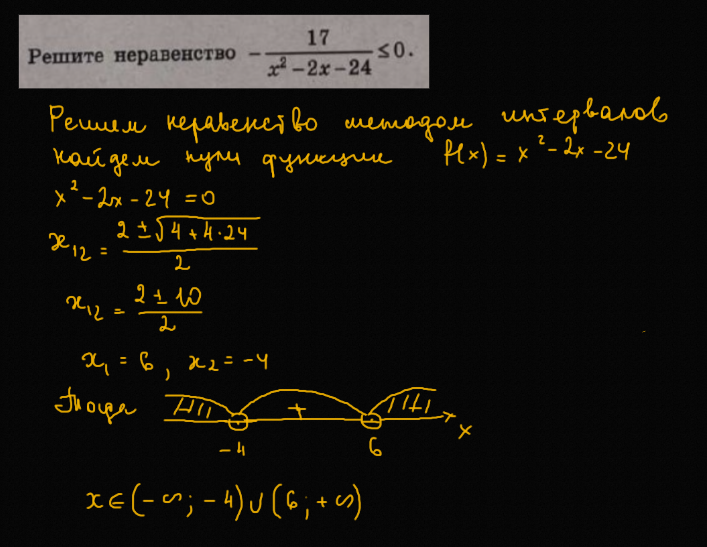 Решите неравенство −17/(x² − 2x − 24) ≤ 0.
Решим неравенство методом интервалов
найдем нули функции f(x) = x² − 2x − 24
x² − 2x − 24 = 0
x₁₂ = (2 ± √(4 + 4·24))/2
x₁₂ = (2 ± 10)/2
x₁ = 6, x₂ = −4
Тогда +
−4 6 x
x ∈ (−∞; −4) ∪ (6; +∞)